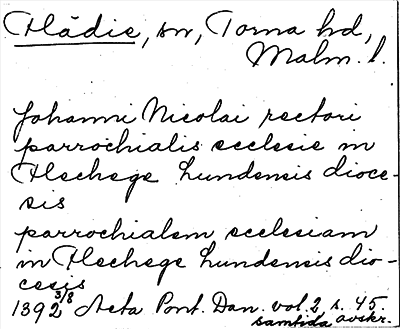 Flädie, sn, Torna hd,
Malm. l.
Johanni Nicolai rectori
parrochialis ecclesie in
Flechege Lundensis dioce-
sis
parrochialem ecclesiam
in Flechege Lundensis dio-
cesis
1392 3/8 Acta Pont. Dan. vol. 2 s. 45
samtida avskr.